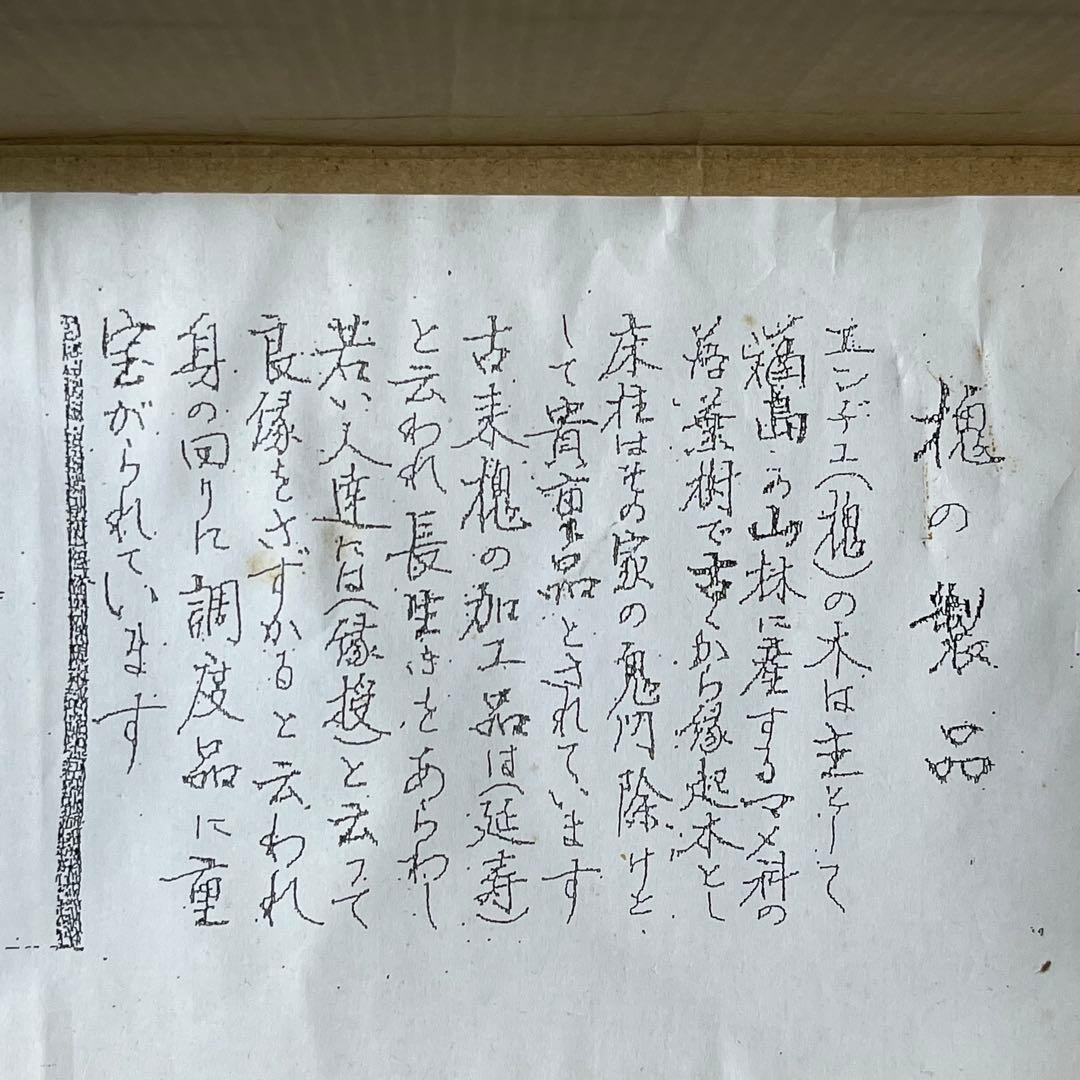 槐の製品
エンヂュ(槐)の木は主として
福島の山林に産するマメ科の
落葉樹で古くから縁起木とし
床柱はその家の鬼門除けと
して貴重品とされています
古来槐の加工品は(延寿)
と云われ長生きをあらわし
若い人達には(縁授)と云って
良縁をさずかると云われ
身の回りに調度品に重
宝がられています